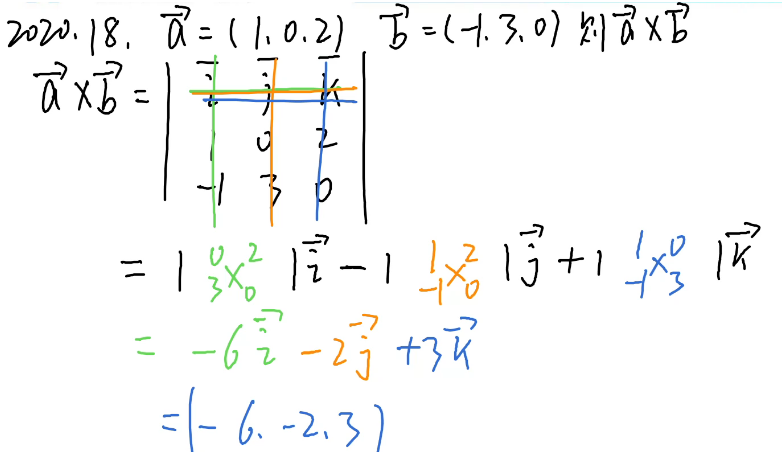 2020.18. a⃗=(1.0.2) b⃗=(-1.3.0) 则a⃗×b⃗
a⃗×b⃗= | i⃗ j⃗ k⃗ |
| 1 0 2 |
| -1 3 0 |
= | 0 2 | i⃗ - | 1 2 | j⃗ + | 1 0 | k⃗
| 3 × 0 | | -1 × 0 | | -1 × 3 |
= -6i⃗ -2j⃗ +3k⃗
=(-6.-2.3)